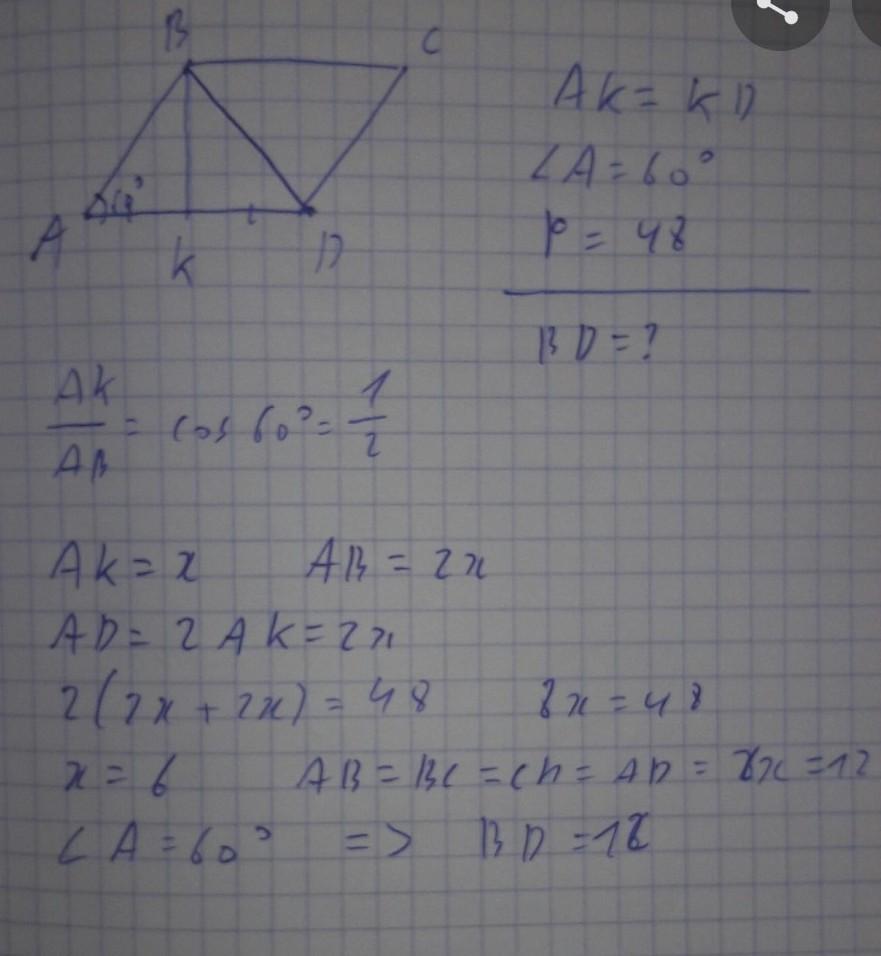 B
C
A
60°
K
D
AK = KD
∠A = 60°
P = 48
BD = ?
AK/AB = cos 60° = 1/2
AK = x AB = 2x
AD = 2AK = 2x
2(2x + 2x) = 48 8x = 48
x = 6 AB = BC = CD = AD = 2x = 12
∠A = 60° => BD = 12